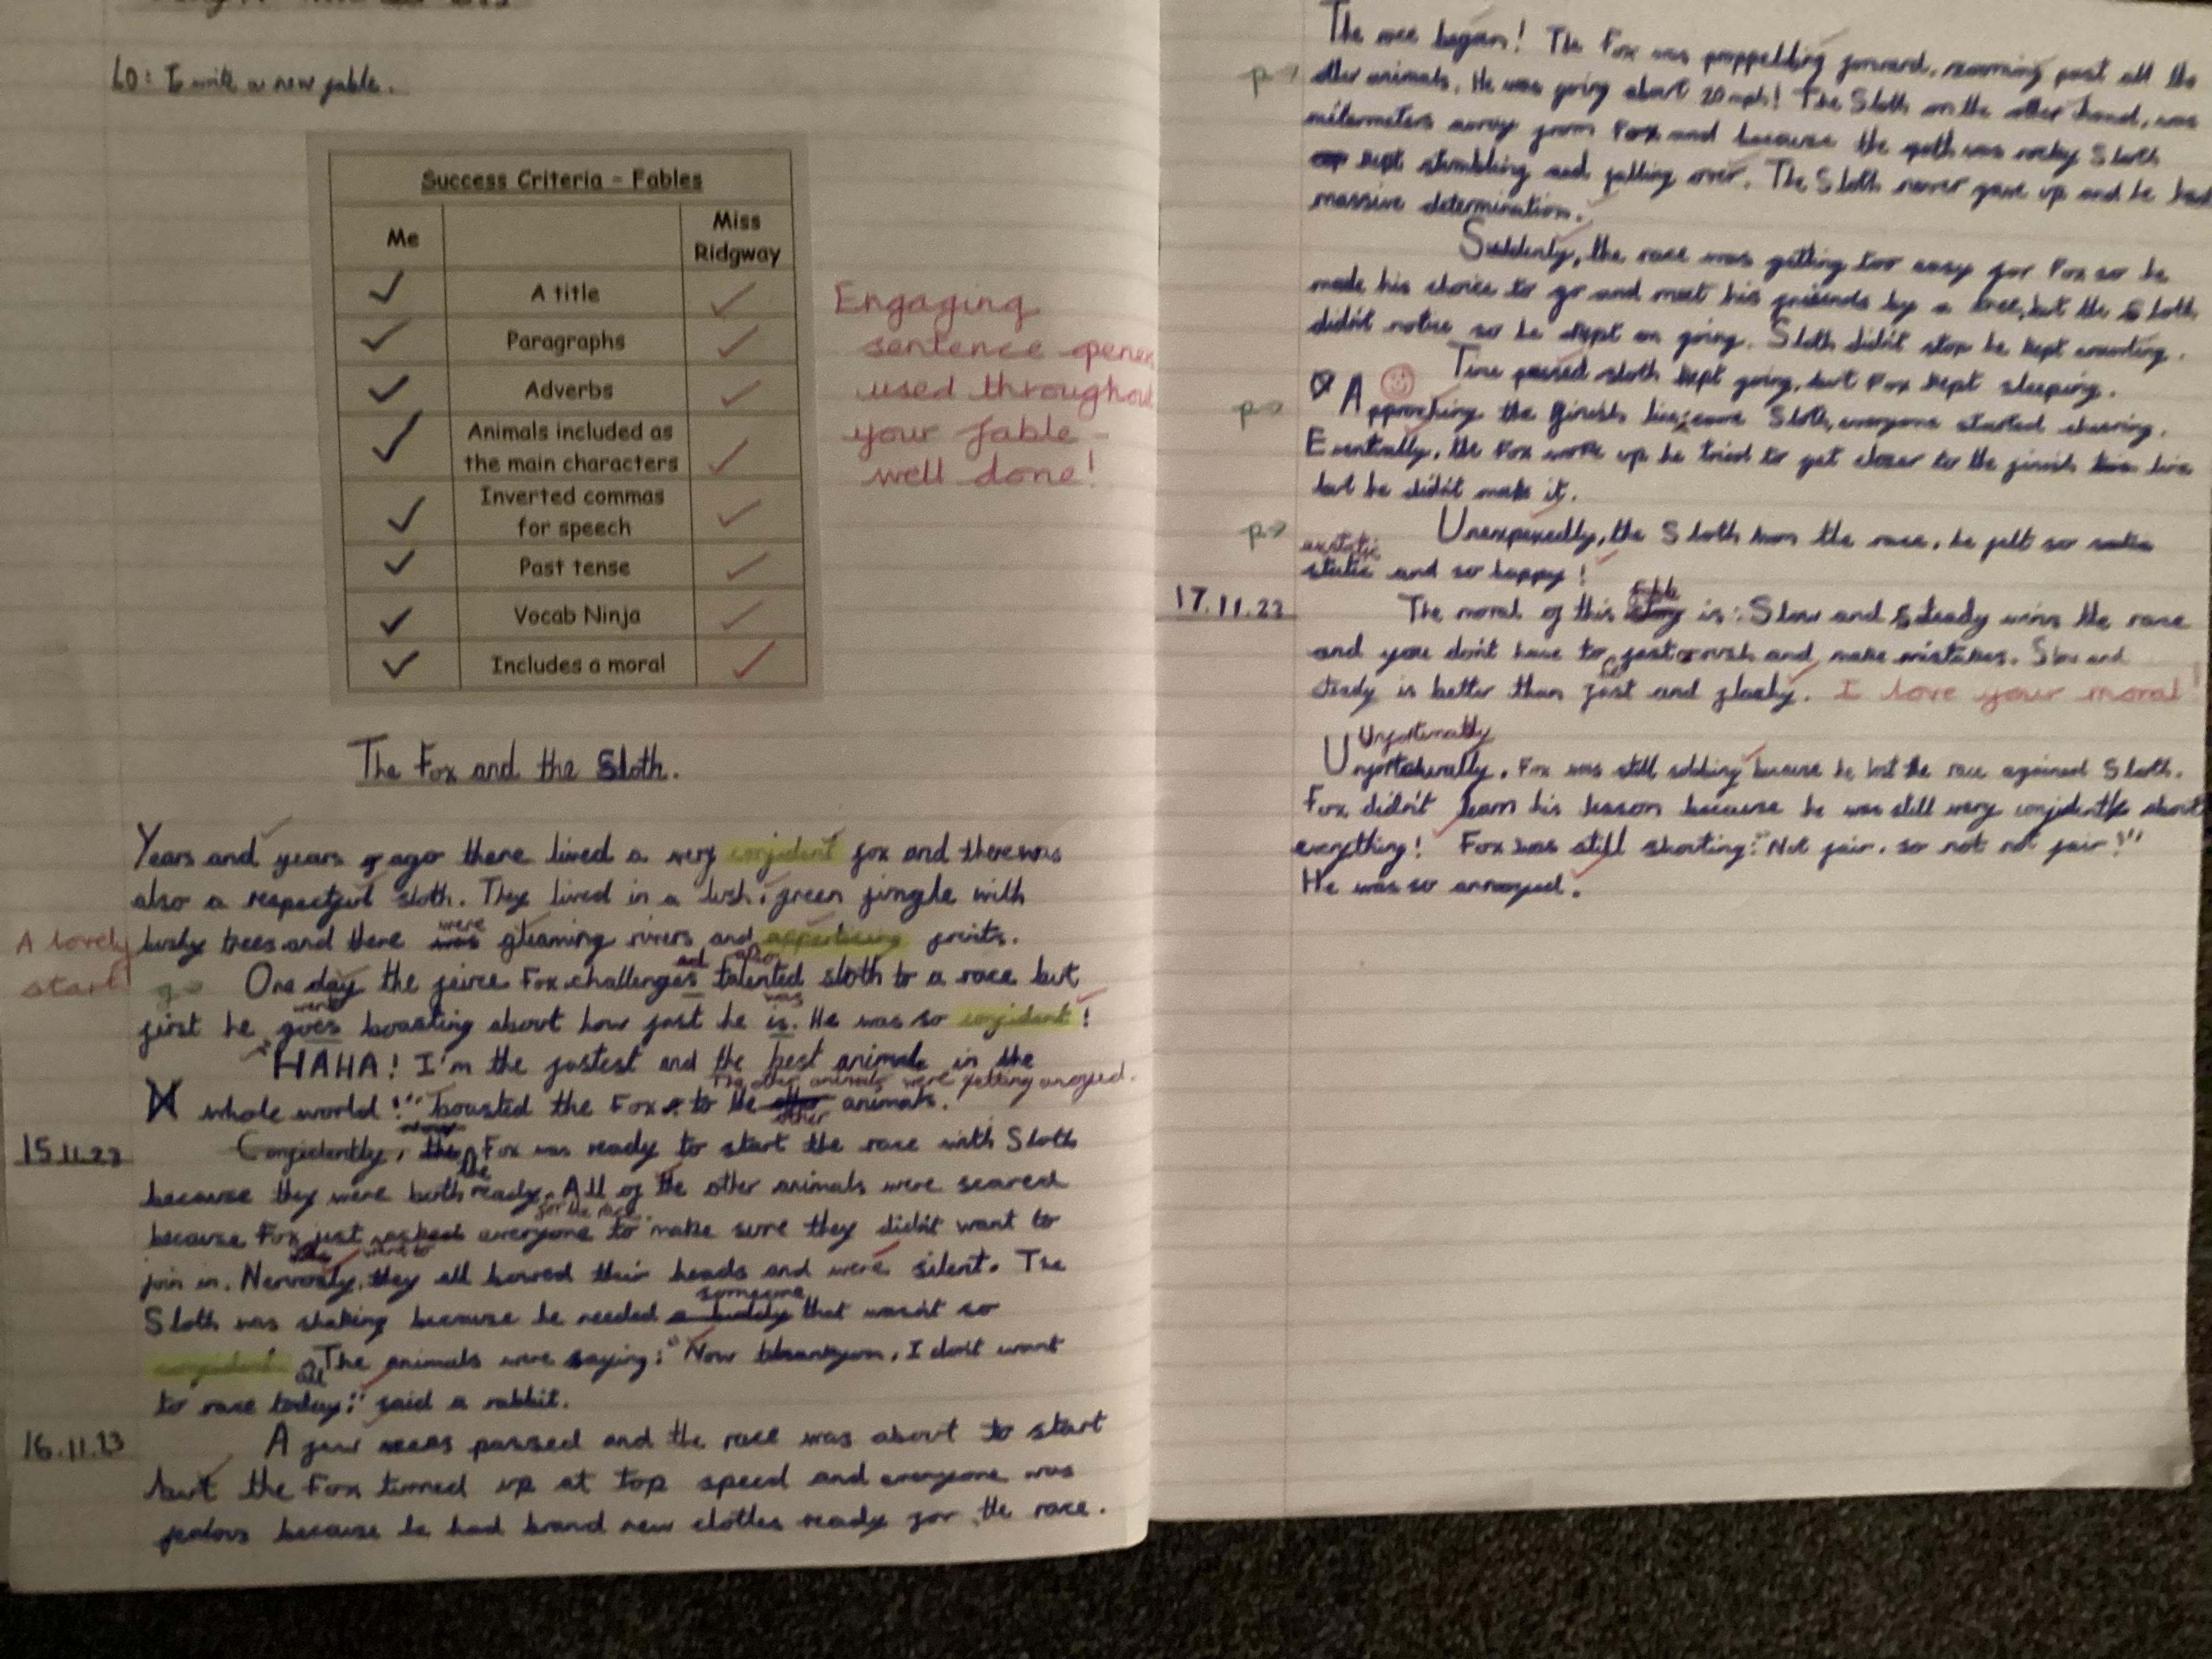 LO: To write a new fable.
Success Criteria - Fables
Me
Miss
Ridgway
A title
Paragraphs
Adverbs
Animals included as
the main characters
Inverted commas
for speech
Past tense
Vocab Ninja
Includes a moral
Engaging
sentence opener
used throughout
your fable -
well done!
The Fox and the Sloth.
Years and years ago there lived a very confident fox and there was
also a respectful sloth. They lived in a lush, green jungle with
A lovely
start!
bushy trees and there were gleaming rivers and fruits.
One day the Fox challenges ed also talented sloth to a race but
first he goes went boasting about how fast he is was. He was so confident!
"HAHA! I'm the fastest and the best animal in the
whole world!" boasted the Fox to the other animals. The other animals were getting anoyed.
15.11.23
Confidently, the Fox was ready to start the race with Sloth
because they were both ready for the race. All of the other animals were scared
because Fox just asked everyone to make sure they didn't want to
join in. Nervously, they all bowed their heads and were silent. The
Sloth was shaking because he needed someone that wasn't so
confident. All The animals were saying: "Now I don't want
to race today!" said a rabbit.
16.11.23
A few passed and the race was about to start
but the Fox turned up at top speed and everyone was
jealous because he had brand new clothes ready for the race.
The race began! The Fox was proppelding forward, past all the
p
other animals. He was going about 20mph! The Sloth on the other hand, was
away from Fox and because the path was rocky Sloth
kept stumbling and falling over. The Sloth never gave up and he had
massive determination.
Suddenly, the race was getting too easy for Fox so he
made his choice to go and meet his friends by a tree, but the Sloth
didn't notice so he kept on going. Sloth didn't stop he kept
Time passed sloth kept going, but Fox kept sleeping.
p
Approching the finish line, came Sloth, everyone started cheering.
Eventually, the Fox woke up he tried to get closer to the finish line
but he didn't make it.
p
Unexpexedly, the Sloth won the race, he felt so
static and so happy!
17.11.23
The moral of this fable is: Slow and steady wins the race
and you don't have to just rush and make mistakes. Slow and
steady is better than fast and flashy. I love your moral!
Unfortunatly
Fox was still sobbing because he lost the race against Sloth.
Fox didn't learn his lesson because he was still very confident about
everything! Fox was still shouting: "Not fair, so not not fair!"
He was so annoyed.